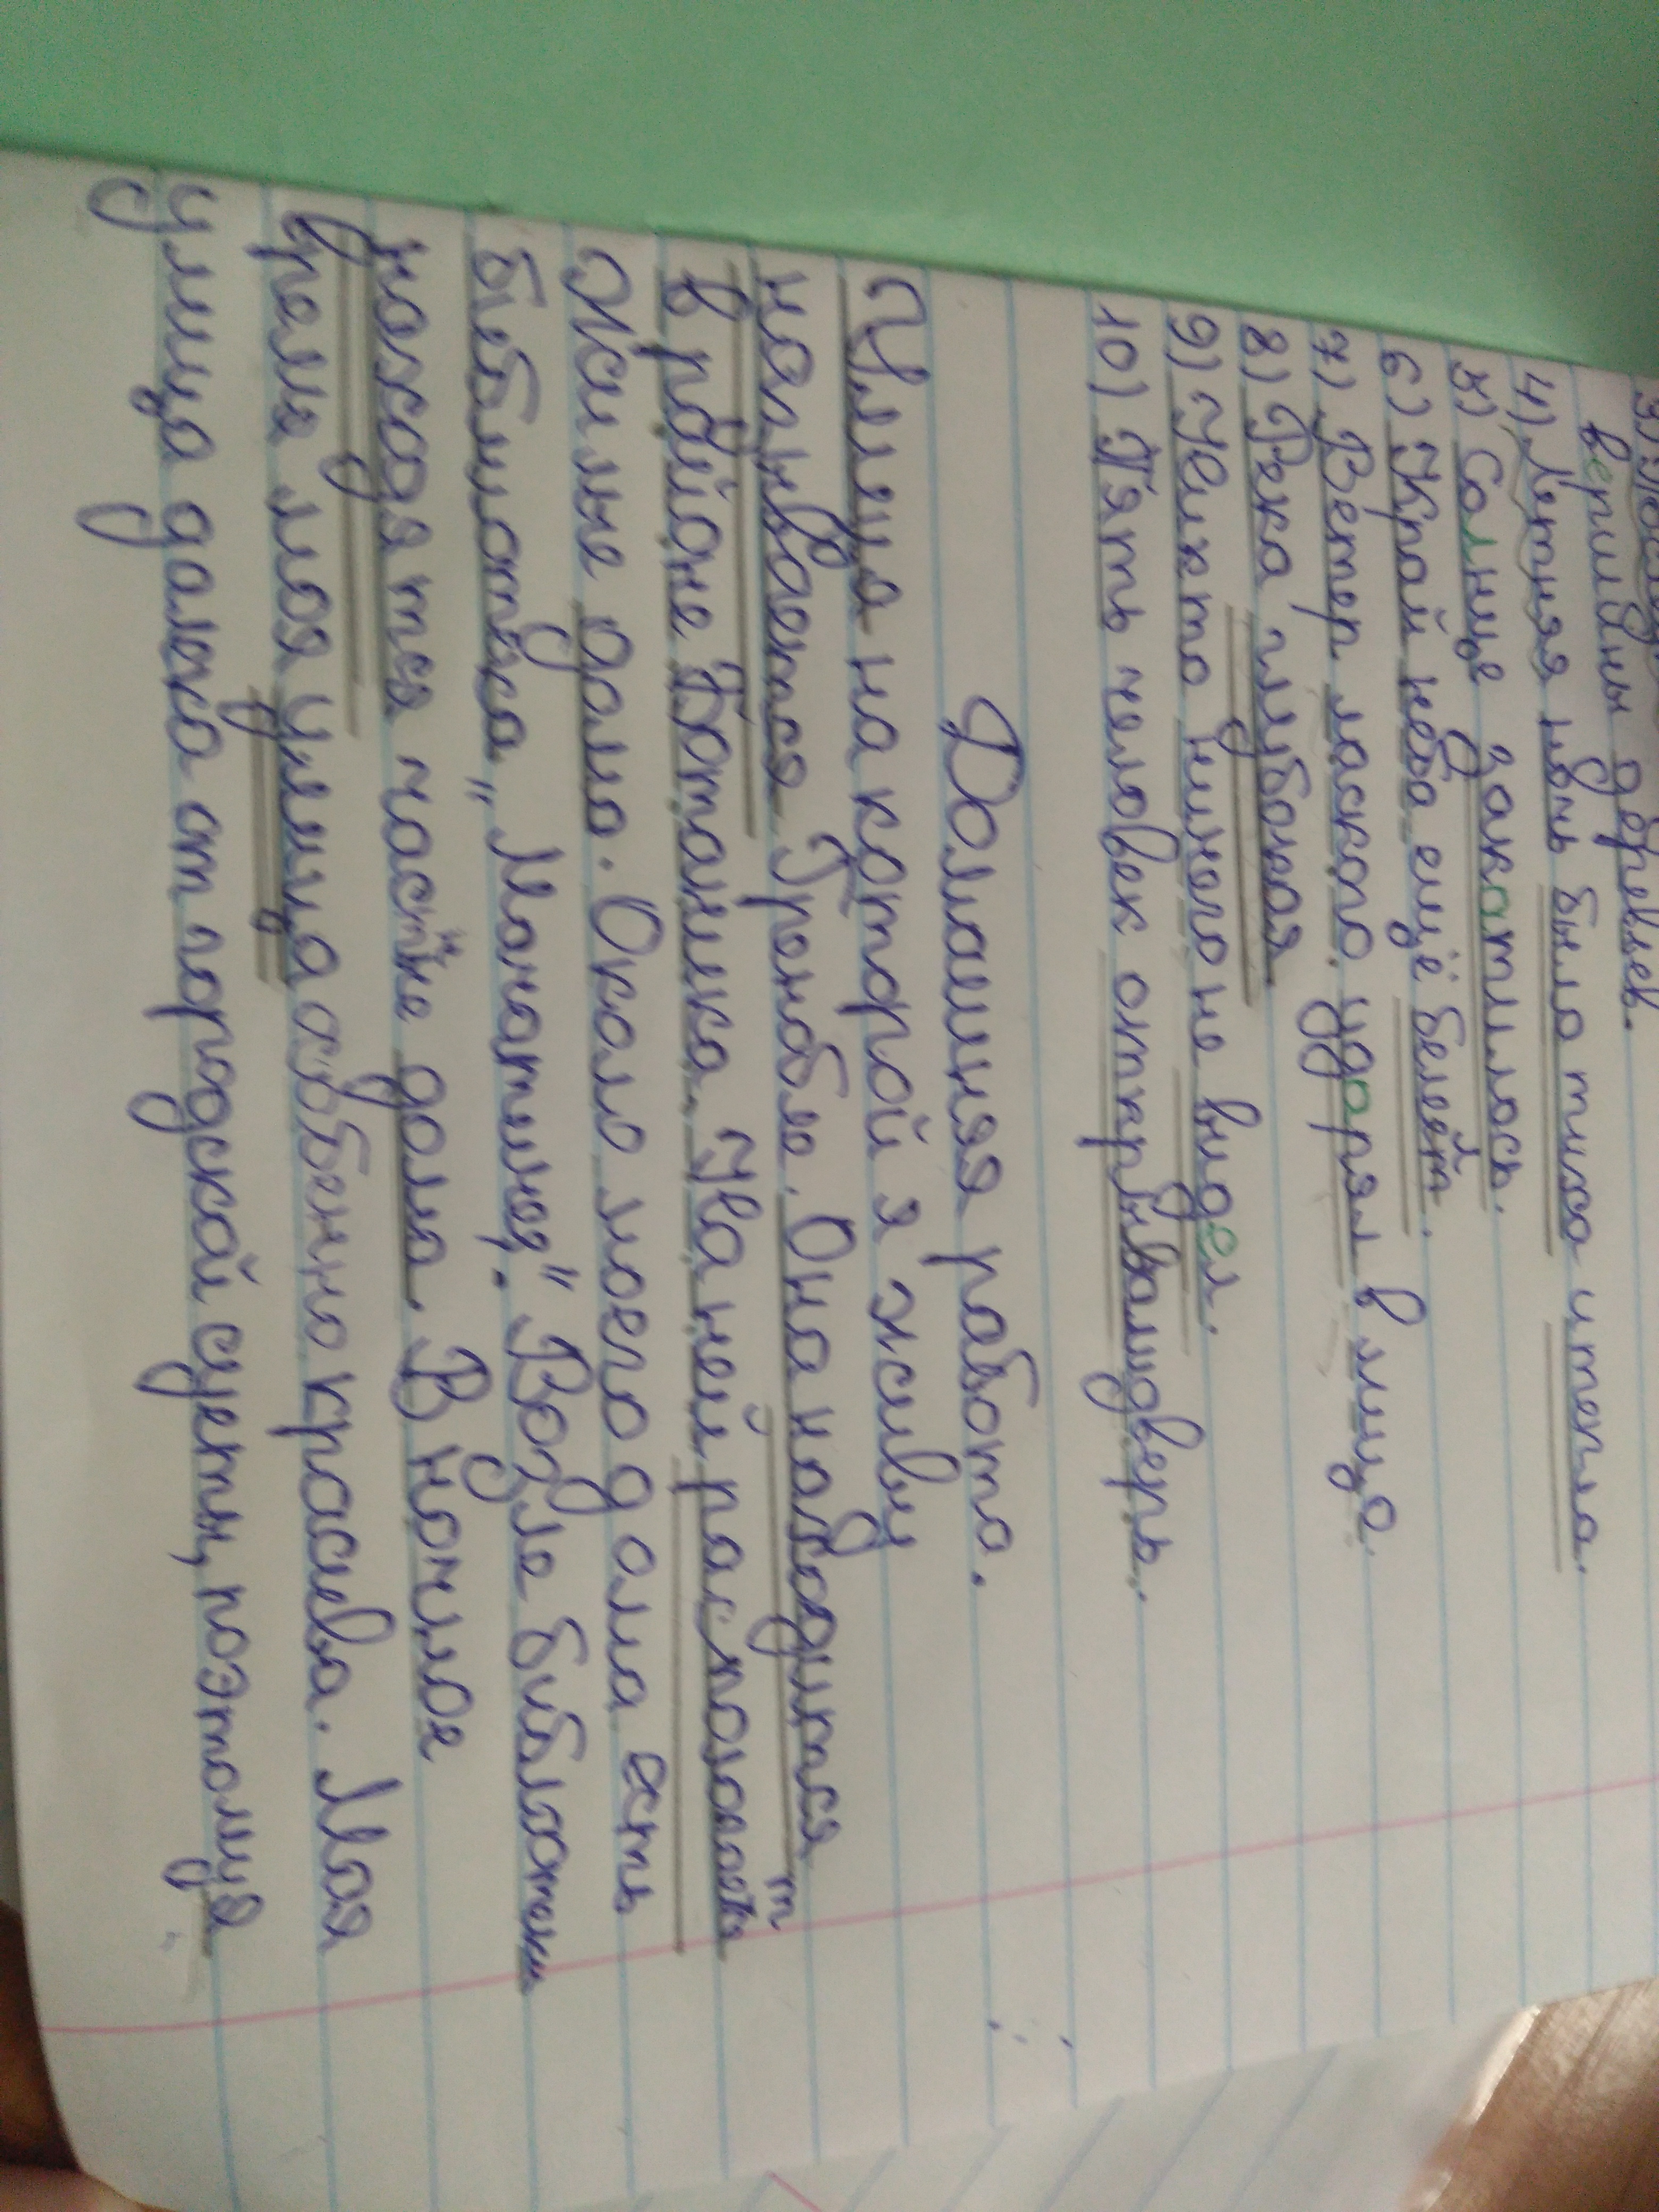 вершины деревьев.
4) Летняя ночь была тиха и тепла.
5) Солнце закатилось.
6) Край неба ещё белеет.
7) Ветер ласково ударял в лицо
8) Река глубокая
9) Никто ничего не видел.
10) Пять человек открывали дверь.
Домашняя работа.
Улица на которой я живу
называется Гренобле. Она находится
в районе Ботаника. На ней располагают
жилые дома. Около моего дома есть
библиотека „Монтинья". Возле библиотеки
находятся частные дома. В ночное
время моя улица особенно красива. Моя
улица далека от городской суеты, поэтому я